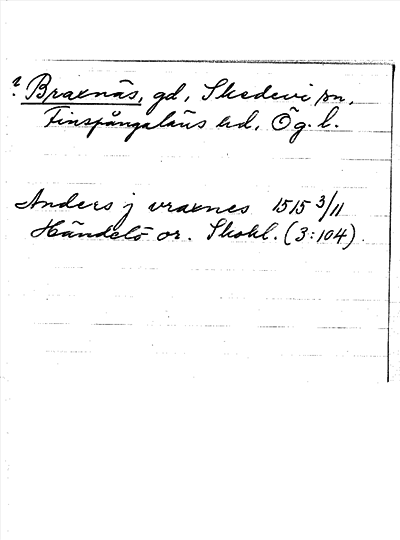 ? Braxnäs, gd, Skedevi sn,
Finspångaläns hd, Ög. l.
Anders j vraxnes 1515 3/11
Händelö or. Skokl. (3:104)